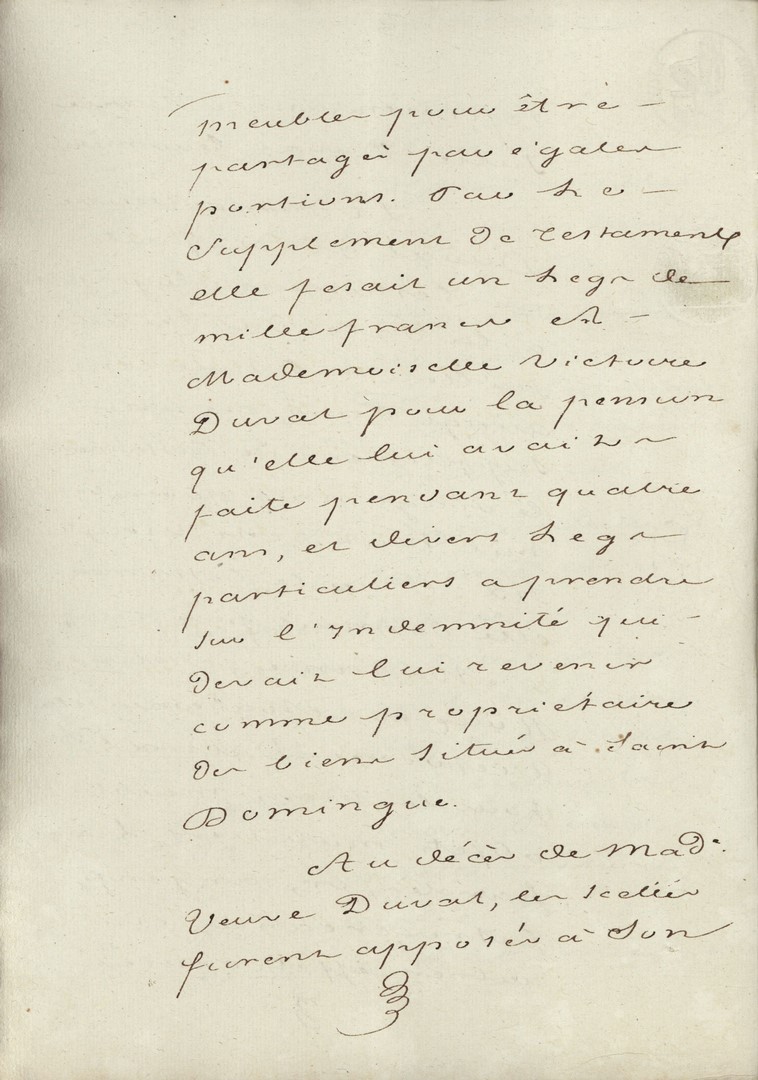 meubles pour être —
partagés par égales
portions. Par le —
Supplement de testament
elle fesait un legs de
mille francs à —
Mademoiselle Victoire
Duval pour la pension
qu'elle lui avait
faite pendant quatre
ans, et divers legs
particuliers a prendre
sur l'Indemnité qui —
devait lui revenir
comme propriétaire
de biens situés à Saint
Domingue.
Au décès de Made.
Veuve Duval, les scellés
furent apposés à son